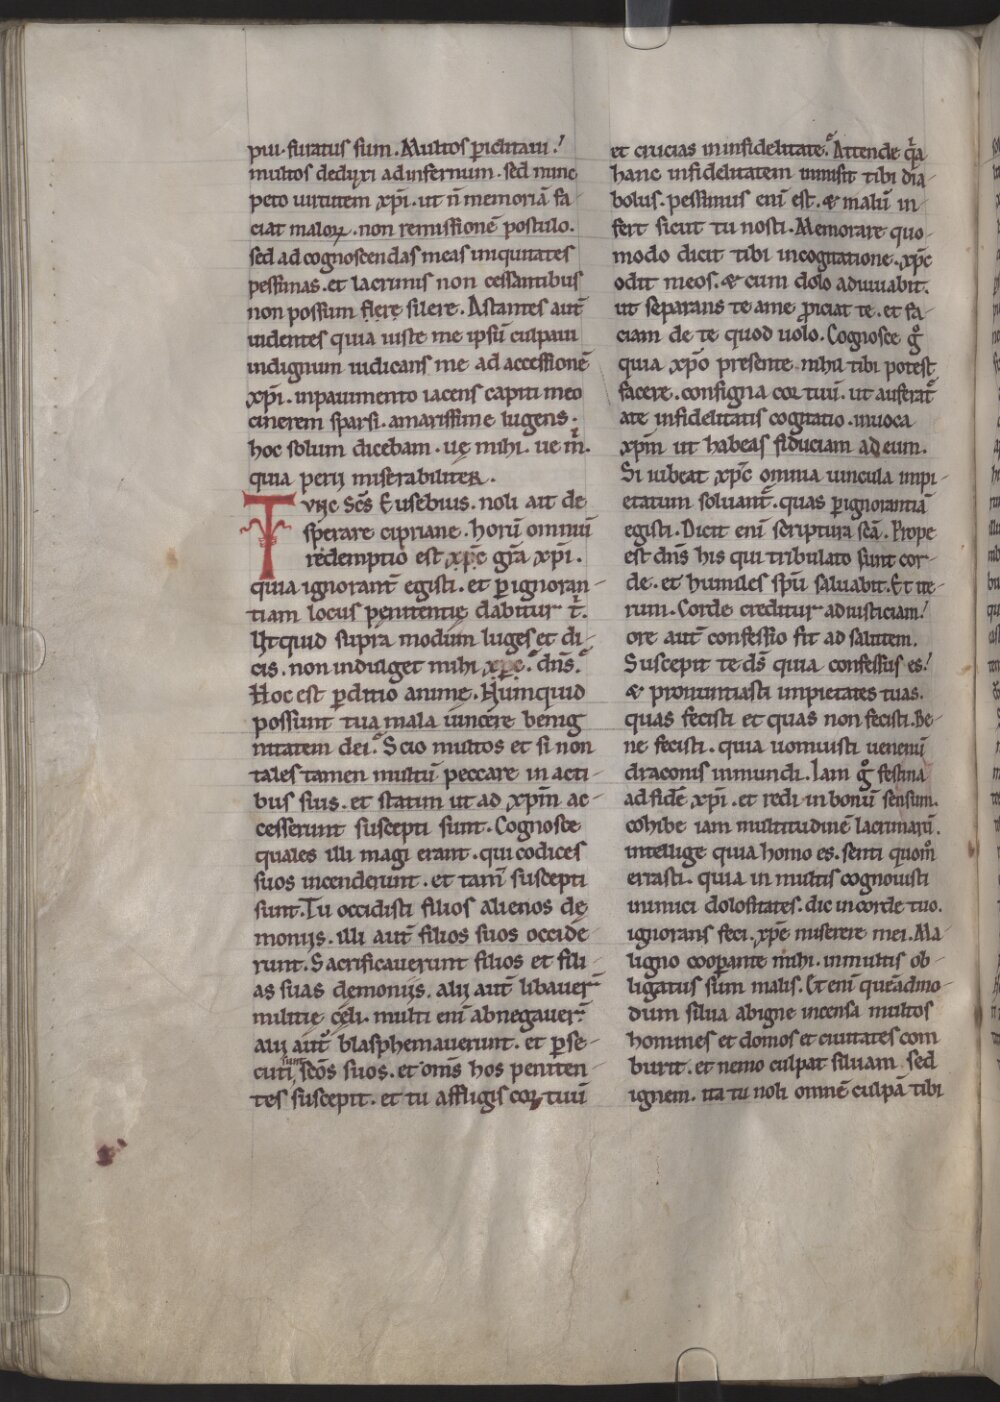 pui. furatus sum. Multos p̄clitaui.
multos dedúxi ad infernum. sed nunc
peto uirtutem xp̄i. ut n̄ memoriā fa
ciat maloꝝ. non remissionē postulo.
sed ad cognoscendas meas iniquitates
pessimas. et lacrimis non cessantibus
non possum flere silere. Astantes aut̄
uidentes quia iuste me ipsū culpaui
indignum iudicans me ad accessionē
xp̄i. in pauimento iacens capiti meo
cinerem sparsi. amarissime lugens.
hoc solum dicebam. uę mihi. ue m̄.
quia perij miserabiliter.
Tvnc sc̄s Eusebius. noli ait de
sperare cipriane. horū omniū
redemptio est xp̄c gr̄a xpi.
quia ignorant̄ egisti. et ꝑ ignoran-
tiam locus penitentię dabitur t̄.
Vt quid supra modum luges et di-
cis. non indulget mihi xp̄c dn̄s.
Hoc est ꝑditio anime. Numquid
possunt tua mala uincere benig
nitatem dei. Scio multos et si non
tales tamen multū peccare in acti-
bus suis. et statim ut ad xp̄m ac-
cesserunt suscepti sunt. Cognosce
quales illi magi erant. qui codices
suos incenderunt. et tam̄ suscepti
sunt. Tu occidisti filios alienos dę
monijs. illi aut̄ filios suos occide-
runt. Sacrificauerunt filios et fili-
as suas demonijs. alij aut̄ libauer̄
militię cęli. multi eni abnegauer̄
alij aut̄ blasphemauerunt. et ꝑse-
cuti sunt sc̄os suos. et om̄s hos peniten-
tes suscepit. et tu affligis cor tuū
et crucias in infidelitate. Attende q̄a
hanc infidelitatem inmisit tibi dia-
bolus. pessimus enī est. & malū in-
fert sicut tu nosti. Memorare quo-
modo dicit tibi in cogitatione. xp̄c
odit meos. & cum dolo adiuuabit.
ut separans te a me ꝓiciat te. et fa-
ciam de te quod uolo. Cognosce gͦ
quia xp̄o presente nihil tibi potest
facere. consigna cor tuū. ut auferat᷑
a te infidelitatis cogitatio. inuoca
xp̄m ut habeas fiduciam ad eum.
Si iubeat xp̄c omnia uincula impi-
etatum soluant̄. quas ꝑ ignorantiā
egisti. Dicit enī scriptura sc̄a. Prope
est dn̄s his qui tribulato sunt cor-
de. et humiles sp̄u saluabit. Et ite-
rum. Corde creditur ad iusticiam.
ore aut̄ confessio fit ad salutem.
Suscepit te ds̄ quia confessus es.
& pronuntiasti impietates tuas.
quas fecisti et quas non fecisti. Be-
ne fecisti. quia uomuisti uenenū
draconis inmundi. Iam gͦ festina
ad fidē xp̄i. et redi in bonū sensum.
cohibe iam multitudinē lacrimarū.
intellige quia homo es. senti quom̄
errasti. quia in multis cognouisti
inimici dolositates. dic in corde tuo.
ignorans feci. xp̄e miserere mei. Ma-
ligno cooꝑante mihi. in multis ob-
ligatus sum malis. Et enī quēadmo-
dum silua ab igne incensa multos
homines et domos et ciuitates com
burit. et nemo culpat siluam. sed
ignem. ita tu noli omnē culpā tibi